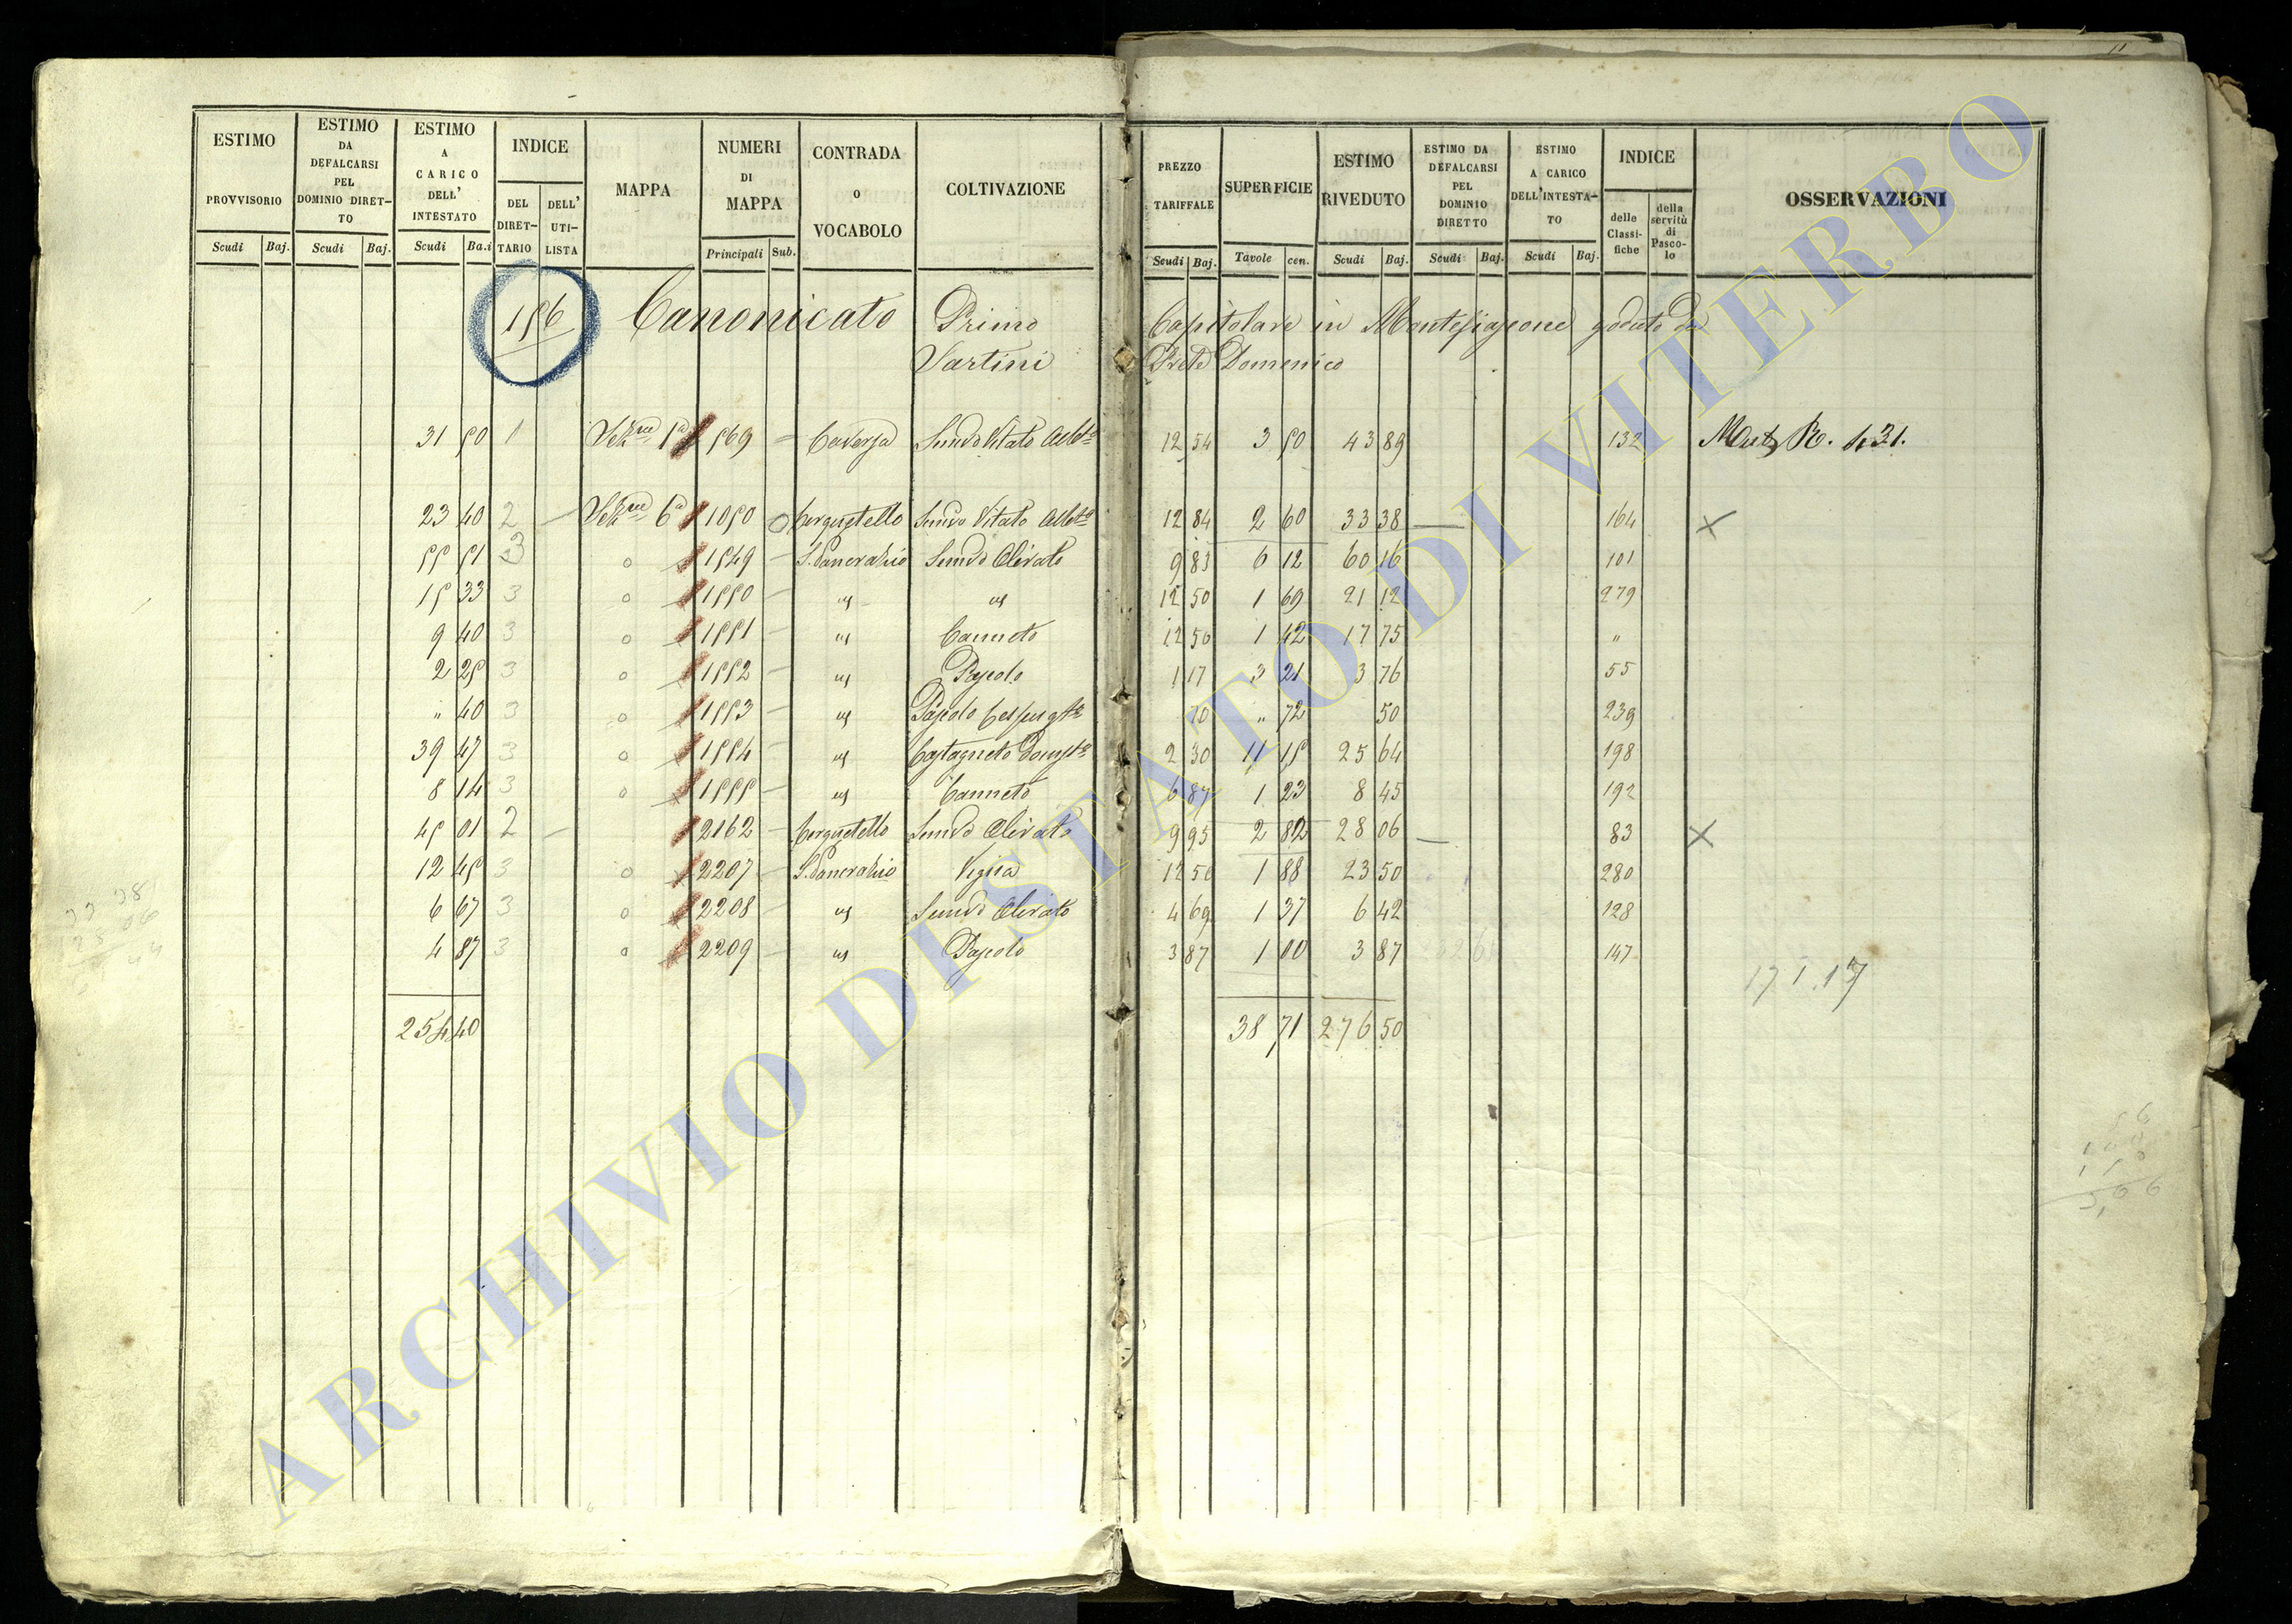 ESTIMO PROVVISORIO Scudi Baj.
ESTIMO DA DEFALCARSI PEL DOMINIO DIRET-TO Scudi Baj.
ESTIMO A CARICO DELL' INTESTATO Scudi Ba.i
INDICE DEL DIRET-TARIO DELL' UTI-LISTA
MAPPA
NUMERI DI MAPPA Principali Sub.
CONTRADA o VOCABOLO
COLTIVAZIONE
PREZZO TARIFFALE Scudi Baj.
SUPERFICIE Tavole cen.
ESTIMO RIVEDUTO Scudi Baj.
ESTIMO DA DEFALCARSI PEL DOMINIO DIRETTO Scudi Baj.
ESTIMO A CARICO DELL'INTESTA-TO Scudi Baj.
INDICE delle Classi-fiche della servitù di Pasco-lo
OSSERVAZIONI
156 Canonicato Primo Capitolare in Montefiascone goduto da
Sartini Prete Domenico
31 50 1 Sez.ne 1a 569 Seminvo Vitato 12 54 3 50 43 89 132 R. 431.
23 40 2 Sez.ne 6a 1050 Cerquetello Seminvo Vitato 12 84 2 60 33 38 164 X
55 51 3 1549 S. Pancrazio Seminvo Olivato 9 83 6 12 60 16 101
15 33 3 1550 12 50 1 69 21 12 279
9 40 3 1551 Canneto 12 50 1 42 17 75 "
2 25 3 1552 Pascolo 1 17 3 21 3 76 55
" 40 3 1553 Pascolo Cespugto 70 " 72 50 239
39 47 3 1554 Castagneto 2 30 11 15 25 64 198
8 14 3 1555 Canneto 6 87 1 23 8 45 192
45 01 2 2162 Cerquetello Seminvo Olivato 9 95 2 82 28 06 83 X
12 45 3 2207 S. Pancrazio Vigna 12 50 1 88 23 50 280
6 67 3 2208 Seminvo Olivato 4 69 1 37 6 42 128
4 87 3 2209 Pascolo 3 87 1 00 3 87 147
254 40 38 71 276 50
ARCHIVIO DI STATO DI VITERBO